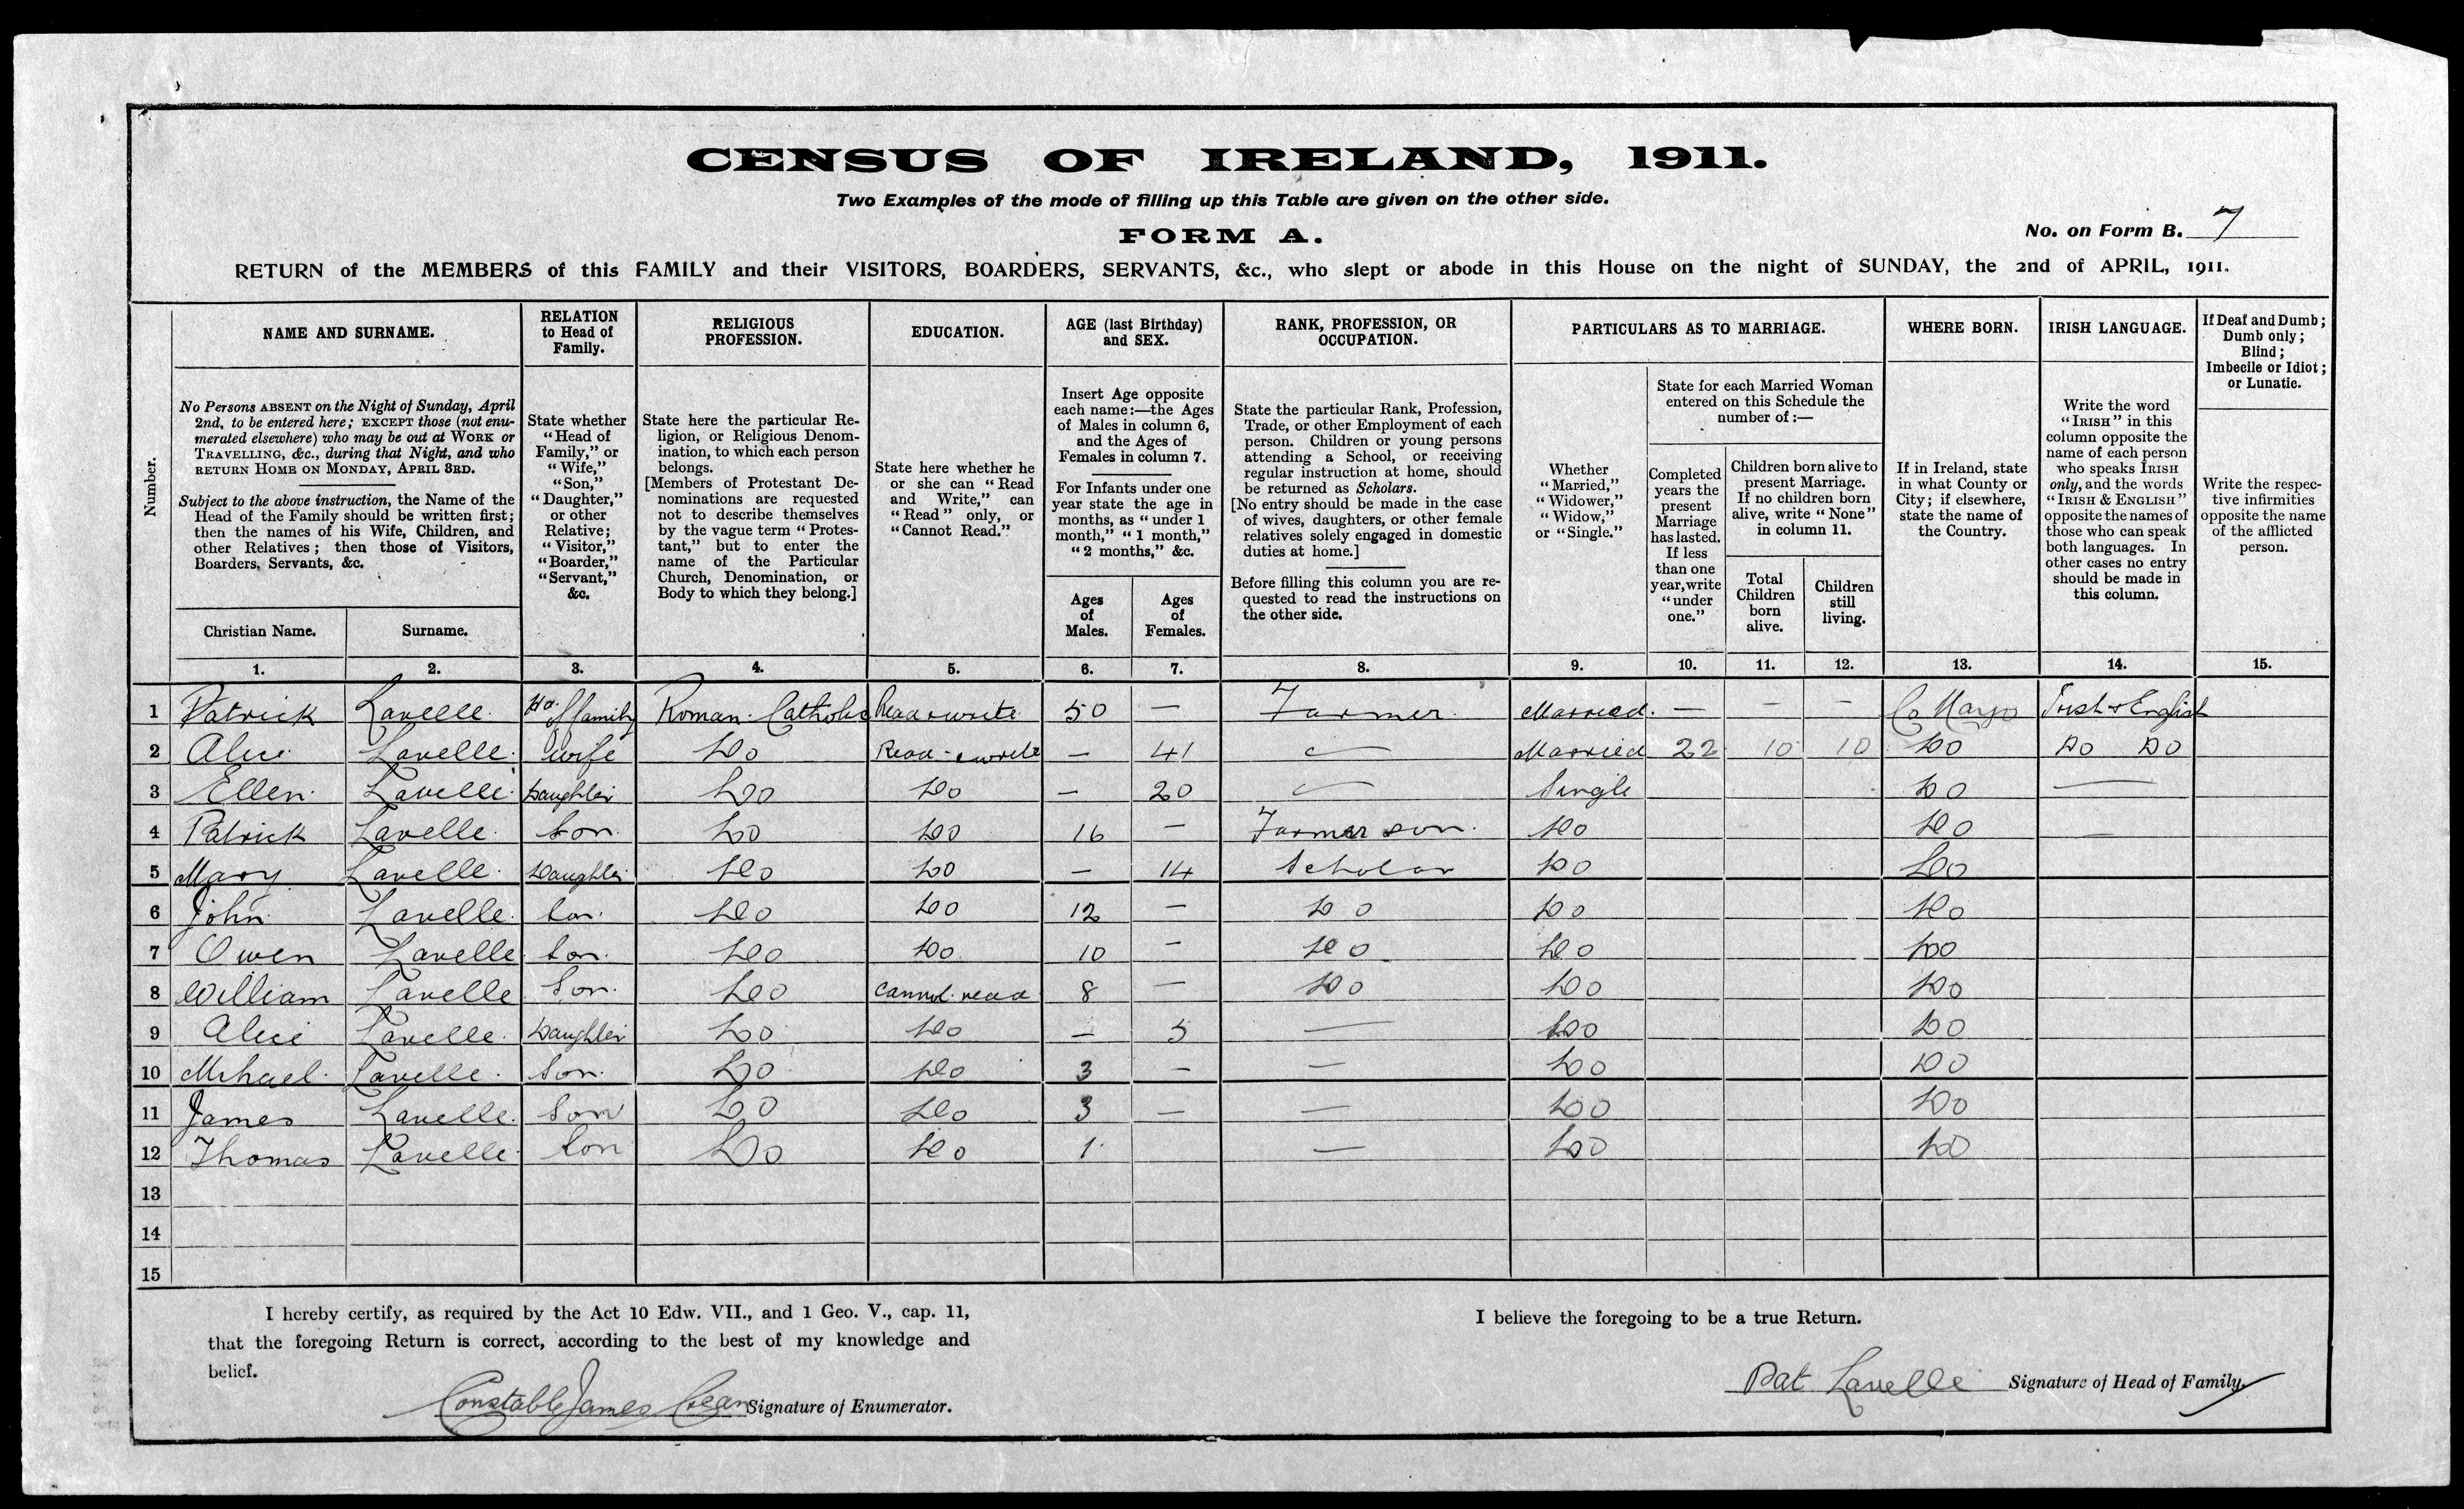 CENSUS OF IRELAND, 1911.
Two Examples of the mode of filling up this Table are given on the other side.
FORM A.
No. on Form B. 7
RETURN of the MEMBERS of this FAMILY and their VISITORS, BOARDERS, SERVANTS, &c., who slept or abode in this House on the night of SUNDAY, the 2nd of APRIL, 1911.
Number.
NAME AND SURNAME.
No Persons ABSENT on the Night of Sunday, April
2nd, to be entered here; EXCEPT those (not enu-
merated elsewhere) who may be out at WORK or
TRAVELLING, &c., during that Night, and who
RETURN HOME ON MONDAY, APRIL 3RD.
Subject to the above instruction, the Name of the
Head of the Family should be written first;
then the names of his Wife, Children, and
other Relatives; then those of Visitors,
Boarders, Servants, &c.
Christian Name.
Surname.
1.
2.
RELATION
to Head of
Family.
State whether
"Head of
Family," or
"Wife,"
"Son,"
"Daughter,"
or other
Relative;
"Visitor,"
"Boarder,"
"Servant,"
&c.
3.
RELIGIOUS
PROFESSION.
State here the particular Re-
ligion, or Religious Denom-
ination, to which each person
belongs.
[Members of Protestant De-
nominations are requested
not to describe themselves
by the vague term "Protes-
tant," but to enter the
name of the Particular
Church, Denomination, or
Body to which they belong.]
4.
EDUCATION.
State here whether he
or she can "Read
and Write," can
"Read" only, or
"Cannot Read."
5.
AGE (last Birthday)
and SEX.
Insert Age opposite
each name:—the Ages
of Males in column 6,
and the Ages of
Females in column 7.
For Infants under one
year state the age in
months, as "under 1
month," "1 month,"
"2 months," &c.
Ages
of
Males.
Ages
of
Females.
6.
7.
RANK, PROFESSION, OR
OCCUPATION.
State the particular Rank, Profession,
Trade, or other Employment of each
person. Children or young persons
attending a School, or receiving
regular instruction at home, should
be returned as Scholars.
[No entry should be made in the case
of wives, daughters, or other female
relatives solely engaged in domestic
duties at home.]
Before filling this column you are re-
quested to read the instructions on
the other side.
8.
PARTICULARS AS TO MARRIAGE.
Whether
"Married,"
"Widower,"
"Widow,"
or "Single."
9.
State for each Married Woman
entered on this Schedule the
number of:—
Completed
years the
present
Marriage
has lasted.
If less
than one
year, write
"under
one."
10.
Children born alive to
present Marriage.
If no children born
alive, write "None"
in column 11.
Total
Children
born
alive.
Children
still
living.
11.
12.
WHERE BORN.
If in Ireland, state
in what County or
City; if elsewhere,
state the name of
the Country.
13.
IRISH LANGUAGE.
Write the word
"IRISH" in this
column opposite the
name of each person
who speaks IRISH
only, and the words
"IRISH & ENGLISH"
opposite the names of
those who can speak
both languages. In
other cases no entry
should be made in
this column.
14.
If Deaf and Dumb;
Dumb only;
Blind;
Imbecile or Idiot;
or Lunatic.
Write the respec-
tive infirmities
opposite the name
of the afflicted
person.
15.
1 Patrick Lavelle. Hd. of family Roman. Catholic Read & write 50 — Farmer. Married. — — — Co Mayo Irish & English
2 Alice Lavelle. wife Do Read & write — 41 — Married 22 10 10 Do Do Do
3 Ellen Lavelle. Daughter Do Do — 20 — Single Do —
4 Patrick Lavelle. Son. Do Do 16 — Farmer son. Do Do —
5 Mary Lavelle. Daughter Do Do — 14 Scholar Do Do
6 John Lavelle. Son. Do Do 12 — Do Do Do
7 Owen Lavelle Son. Do Do 10 — Do Do Do
8 William Lavelle Son. Do Cannot read 8 — Do Do Do
9 Alice Lavelle. Daughter Do Do — 5 — Do Do
10 Mihael Lavelle. Son. Do Do 3 — — Do Do
11 James Lavelle. Son Do Do 3 — — Do Do
12 Thomas Lavelle Son Do Do 1 — Do Do
13
14
15
I hereby certify, as required by the Act 10 Edw. VII., and 1 Geo. V., cap. 11,
that the foregoing Return is correct, according to the best of my knowledge and
belief.
Constable James Crean Signature of Enumerator.
I believe the foregoing to be a true Return.
Pat Lavelle Signature of Head of Family.